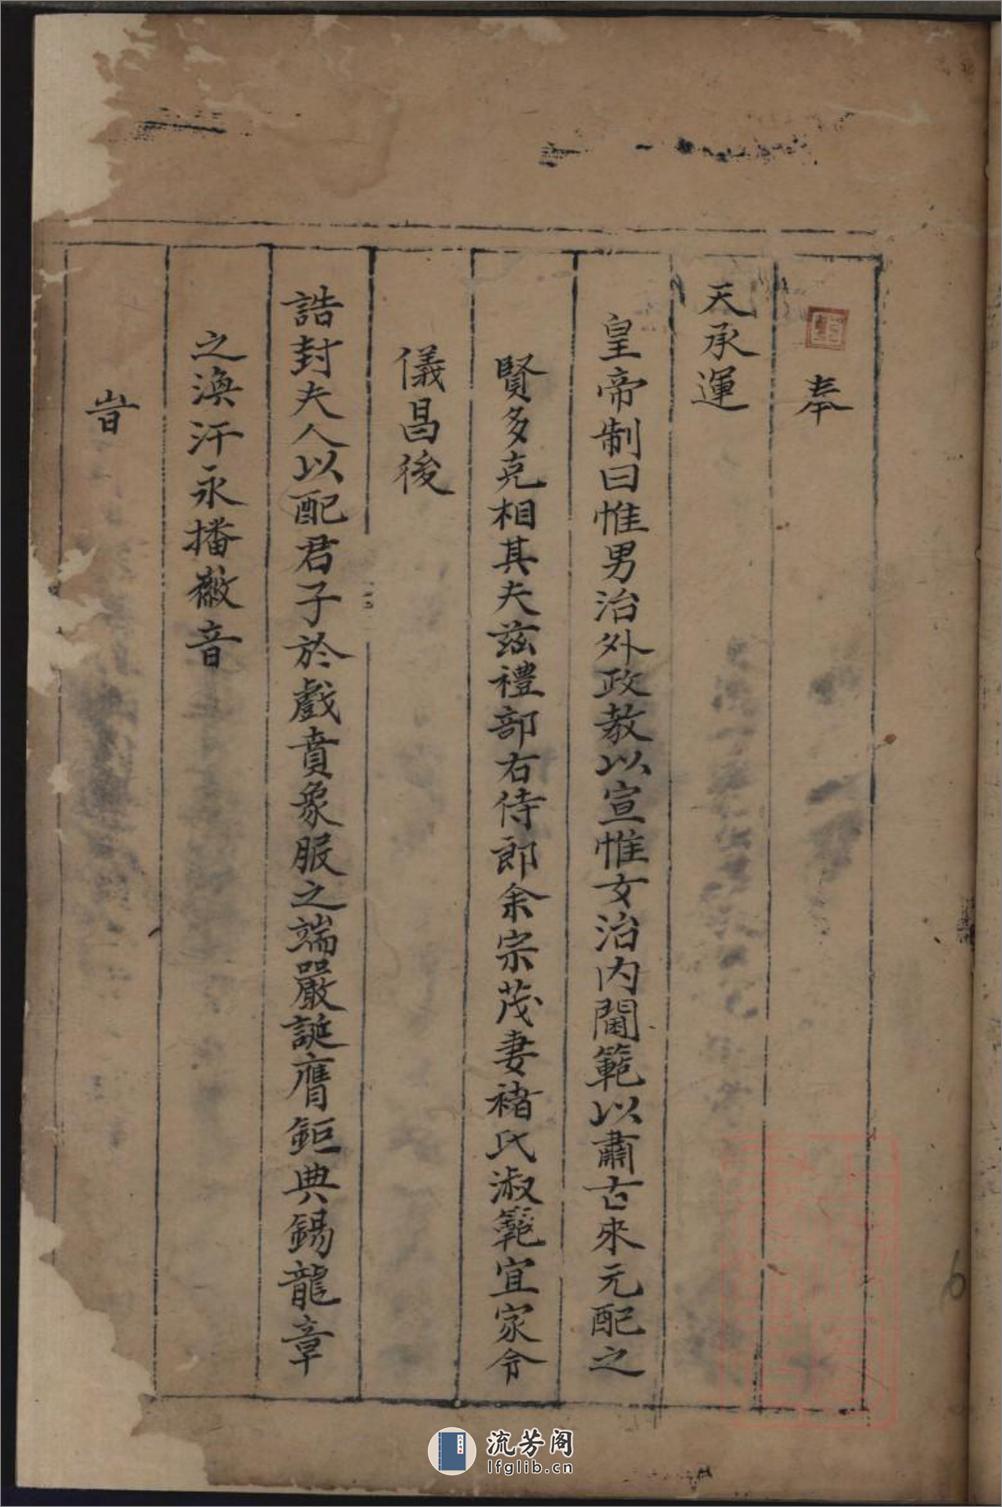 奉
天承運
皇帝制曰惟男治外政教以宣惟女治内閫範以肅古來元配之
賢多克相其夫茲禮部右侍郎余宗茂妻褚氏淑範宜家令
儀昌後
誥封夫人以配君子於戲賁象服之端嚴誕膺鉅典錫龍章
之渙汗永播徽音
旹
6
流芳阁
lfglib.cn